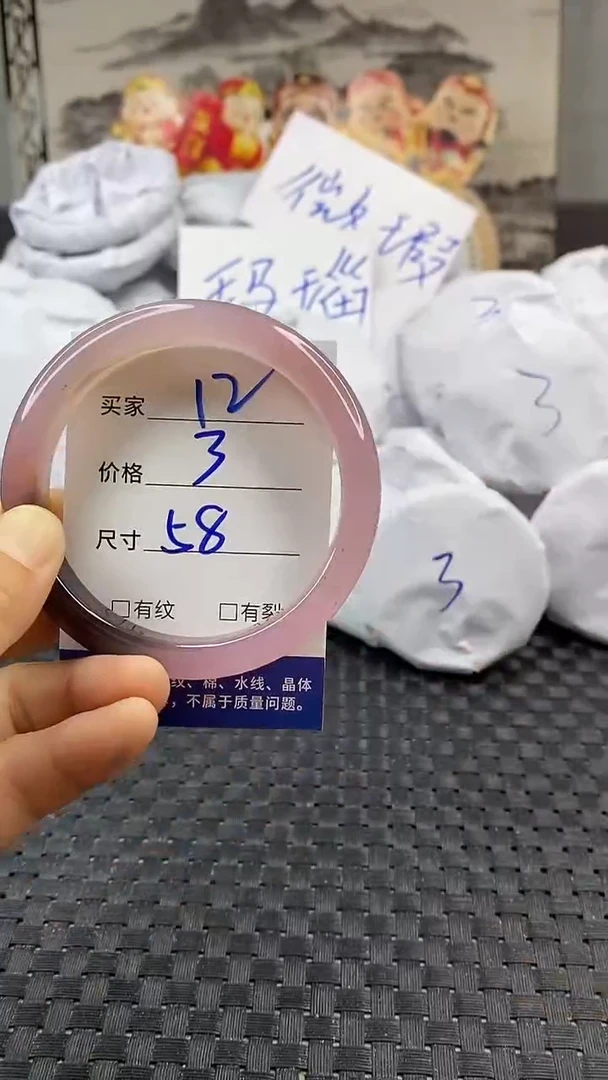 微瑕
玛瑙
买家 12
价格 3
尺寸 58
□有纹 □有裂
纹、棉、水线、晶体
，不属于质量问题。
3
3